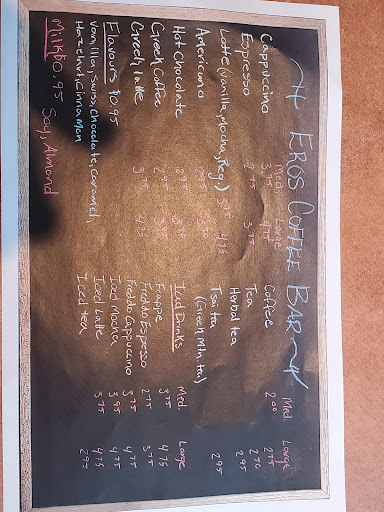 EROS COFFEE BAR
Med. Large
Cappuccino 3.75 4.75
Espresso 2.75 3.75
Latte (Vanilla, Mocha, Reg.) 3.75 4.75
Americano 2.95 3.50
Hot Chocolate 2.95
Greek Coffee 2.95
Greek latte 3.75 4.25
Flavours $0.95
Vanilla, Swiss, Chocolate, Caramel,
Hazelnut, Cinnamon
Milk $0.95 Soy, Almond
Med. Large
Coffee 2.00 2.75
Tea 2.50
Herbal tea 2.95
Tsai tea 2.95
(Greek Mtn. tea)
Iced Drinks Med. Large
Frappe 3.75 4.75
Freddo Espresso 2.75 3.75
Freddo Cappuccino 3.75 4.75
Iced Mocha 3.95 4.75
Iced Latte 3.75 4.75
Iced tea 2.95